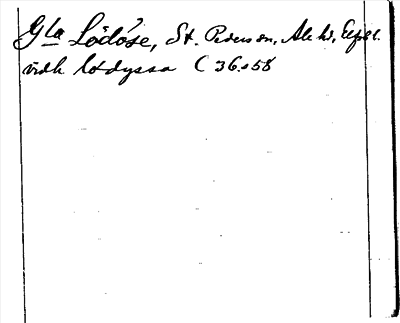 Gla Lödöse, St. Peders sn, Ale hd, Elfsbl.
vidh lödyssa C 36:58